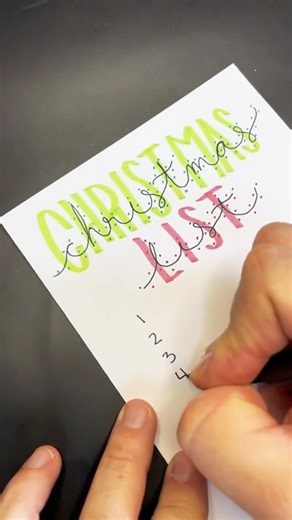 CHRISTMAS
christmas
LIST
list
1
2
3
4